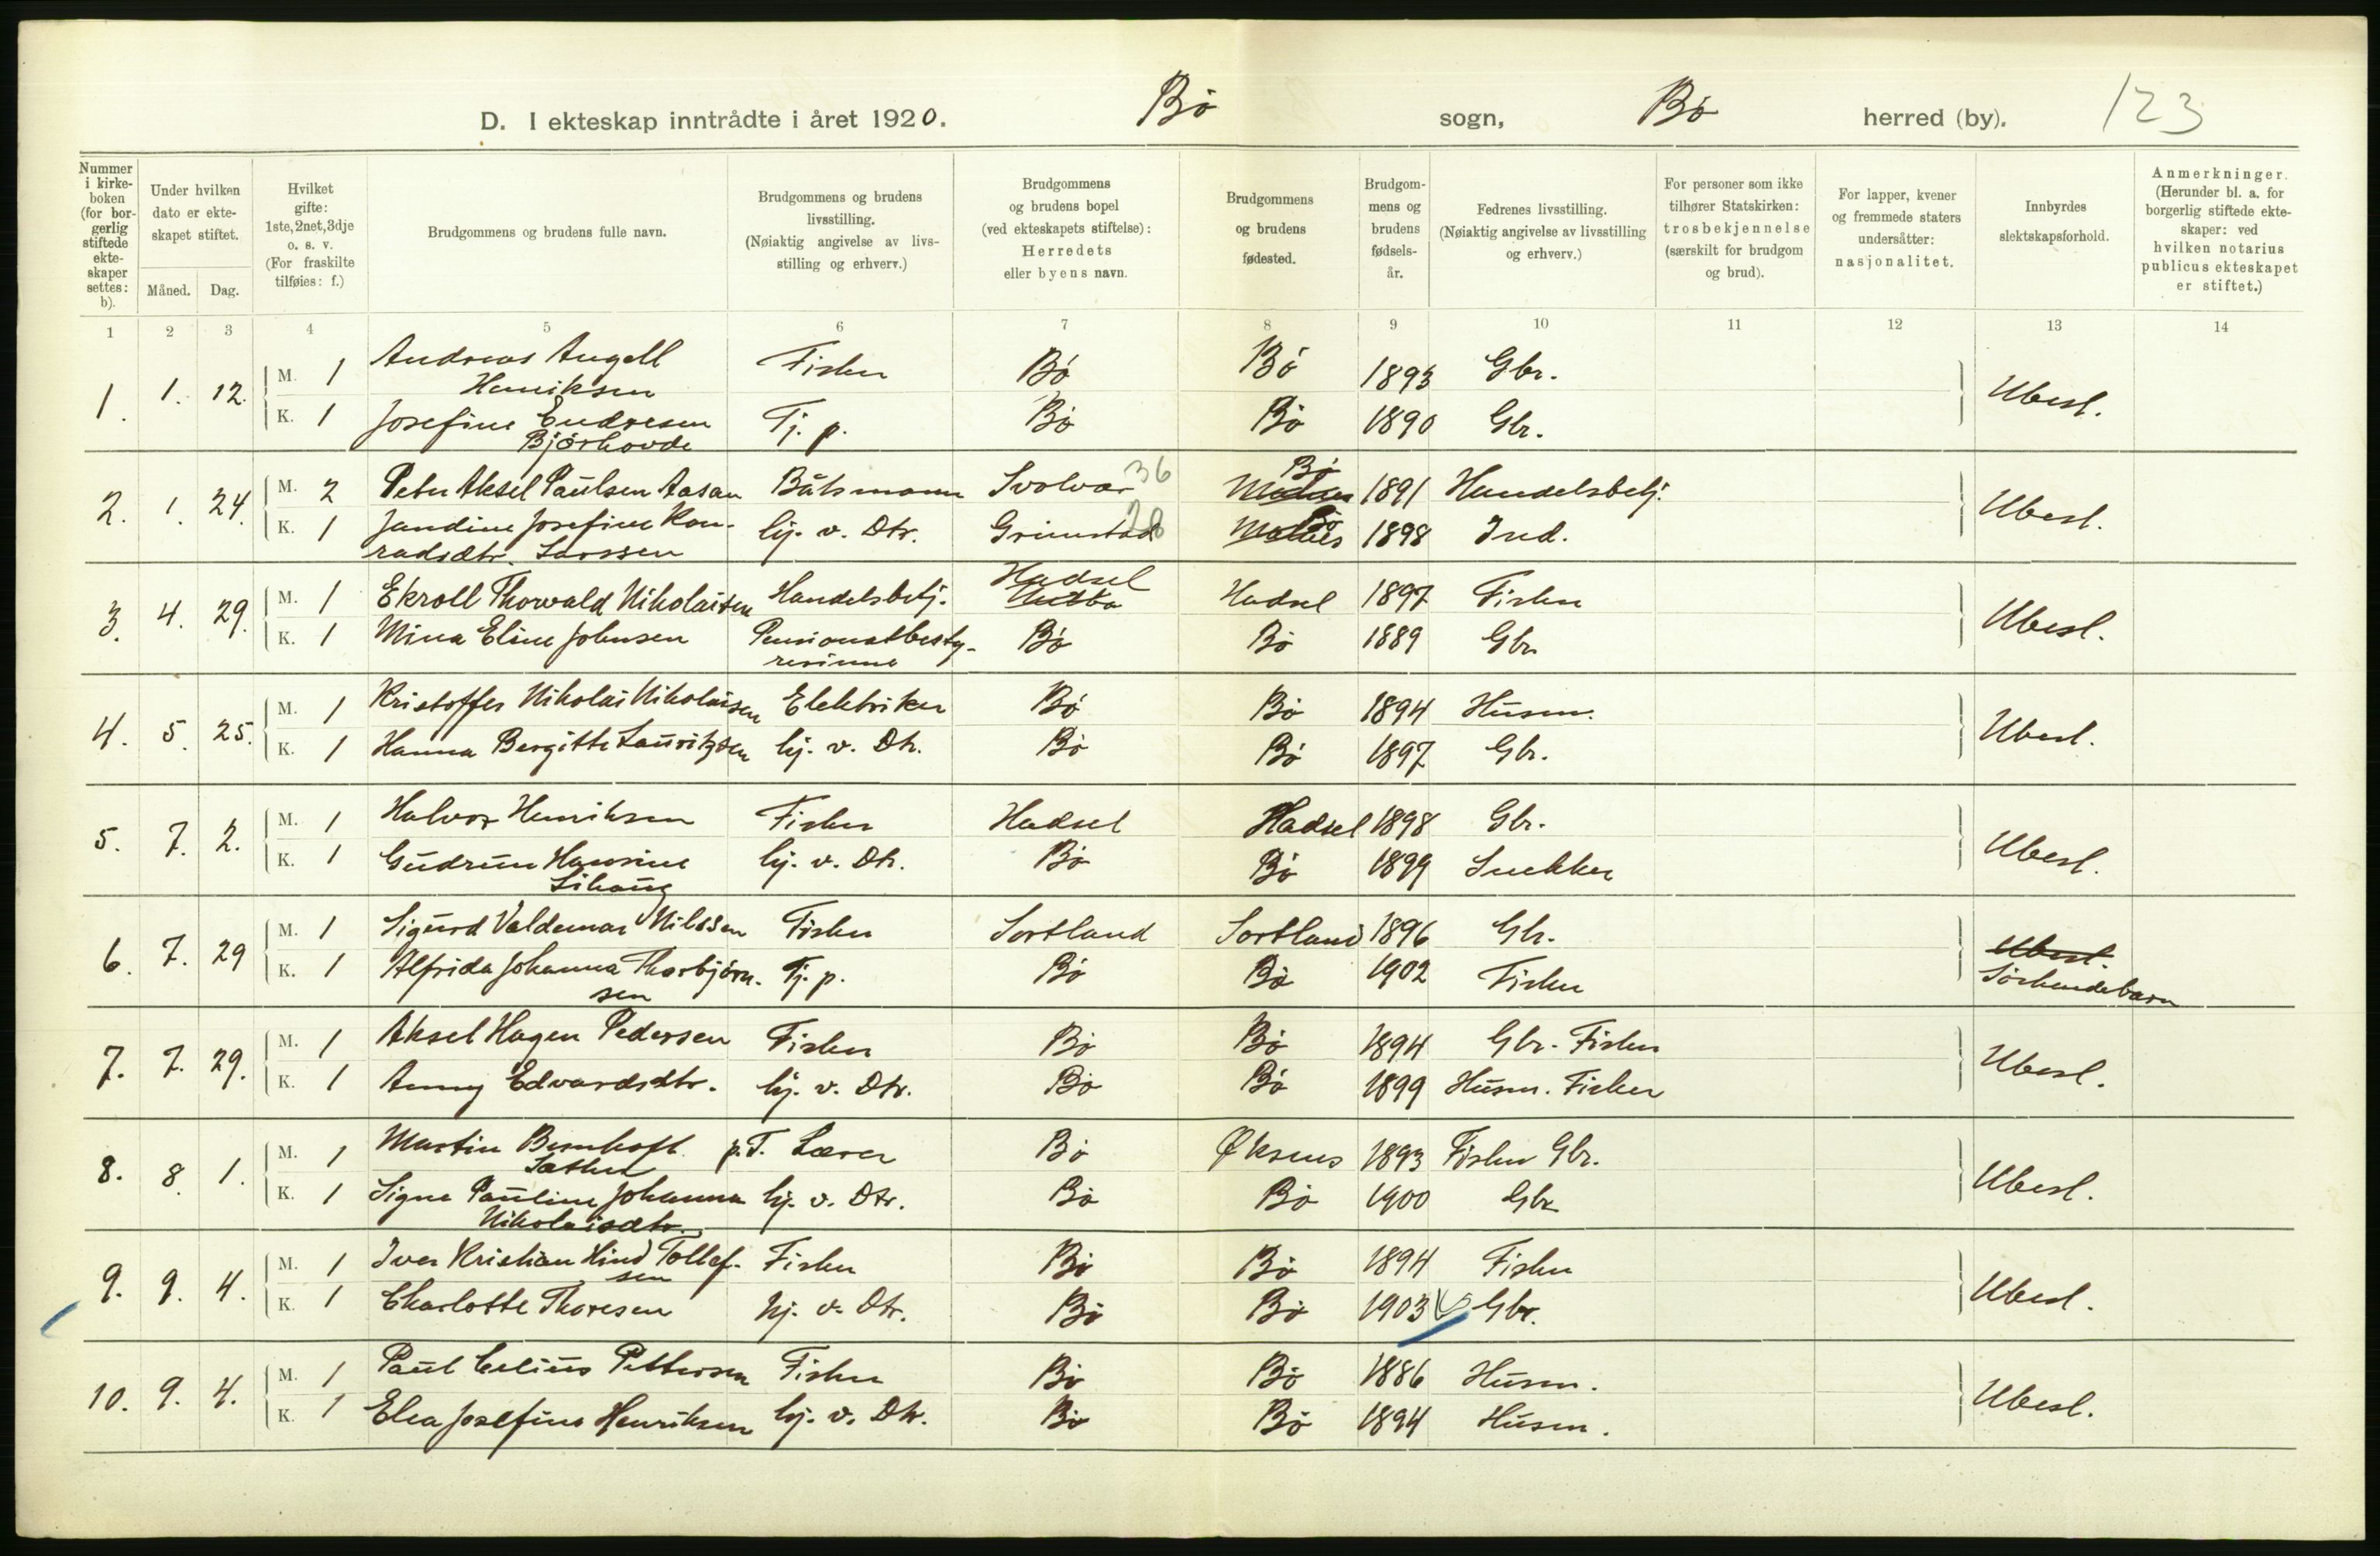 D. I ekteskap inntrådte i året 1920. Bø sogn, Bø herred (by). 123
Nummer i kirke-boken (for bor-gerlig stiftede ekte-skaper settes: b).
Under hvilken dato er ekte-skapet stiftet.
Måned. Dag.
Hvilket gifte: 1ste, 2net, 3dje o. s. v. (For fraskilte tilføies: f.)
Brudgommens og brudens fulle navn.
Brudgommens og brudens livsstilling. (Nøiaktig angivelse av livs-stilling og erhverv.)
Brudgommens og brudens bopel (ved ekteskapets stiftelse): Herredets eller byens navn.
Brudgommens og brudens fødested.
Brudgom-mens og brudens fødsels-år.
Fedrenes livsstilling. (Nøiaktig angivelse av livsstilling og erhverv.)
For personer som ikke tilhører Statskirken: trosbekjennelse (særskilt for brudgom og brud).
For lapper, kvener og fremmede staters undersåtter: nasjonalitet.
Innbyrdes slektskapsforhold.
Anmerkninger. (Herunder bl. a. for borgerlig stiftede ekte-skaper: ved hvilken notarius publicus ekteskapet er stiftet.)
1 2 3 4 5 6 7 8 9 10 11 12 13 14
1. 1. 12. M. 1 Andreas Angell Henriksen Fisker Bø Bø 1893 Gbr. Ubesl.
K. 1 Josefine Endresen Bjørhovde Tj. p. Bø Bø 1890 Gbr.
2. 1. 24. M. 2 Peter Aksel Paulsen Aasan Båtsmann Svolvær 36 Bø 1891 Handelsbetj. Ubesl.
K. 1 Jandine Josefine Kon-radsdtr. Larssen hj. v. Dtr. Grimstad 28 Bø Malnes 1898 Ind.
3. 4. 29. M. 1 Ekroll Thorvald Nikolaisen Handelsbetj. Hadsel Hadsel 1897 Fisker Ubesl.
K. 1 Mina Eline Johnsen Pensionatbesty-rerinne Bø Bø 1889 Gbr
4. 5. 25. M. 1 Kristoffer Nikolai Nikolaisen Elektriker Bø Bø 1894 Husm. Ubesl.
K. 1 Hanna Bergitte Lauritzsen hj. v. Dtr. Bø Bø 1897 Gbr.
5. 7. 2. M. 1 Halvor Henriksen Fisker Hadsel Hadsel 1898 Gbr. Ubesl.
K. 1 Gudrun Hansine Lihaug hj. v. Dtr. Bø Bø 1899 Snekker
6. 7. 29 M. 1 Sigurd Valdemar Nilssen Fisker Sortland Sortland 1896 Gbr. Ubesl. Søskendebarn
K. 1 Alfrida Johanna Thorbjørn-sen Tj. p. Bø Bø 1902 Fisker
7. 7. 29. M. 1 Aksel Hagen Pedersen Fisker Bø Bø 1894 Gbr. Fisker Ubesl.
K. 1 Anny Edvardsdtr. hj. v. Dtr. Bø Bø 1899 Husm. Fisker
8. 8. 1. M. 1 Martin Bernhoft Sæther p.T. Lærer Bø Øksnes 1893 Fisker Gbr. Ubesl.
K. 1 Signe Pauline Johanna Nikolaisdtr. hj. v. Dtr. Bø Bø 1900 Gbr
9. 9. 4. M. 1 Iver Kristian Hind Tollef-sen Fisker Bø Bø 1894 Fisker Ubesl.
K. 1 Charlotte Thoresen hj. v. Dtr. Bø Bø 1903 Gbr.
10. 9. 4. M. 1 Paul Celius Pettersen Fisker Bø Bø 1886 Husm. Ubesl.
K. 1 Elea Josefine Henriksen hj. v. Dtr. Bø Bø 1894 Husm.